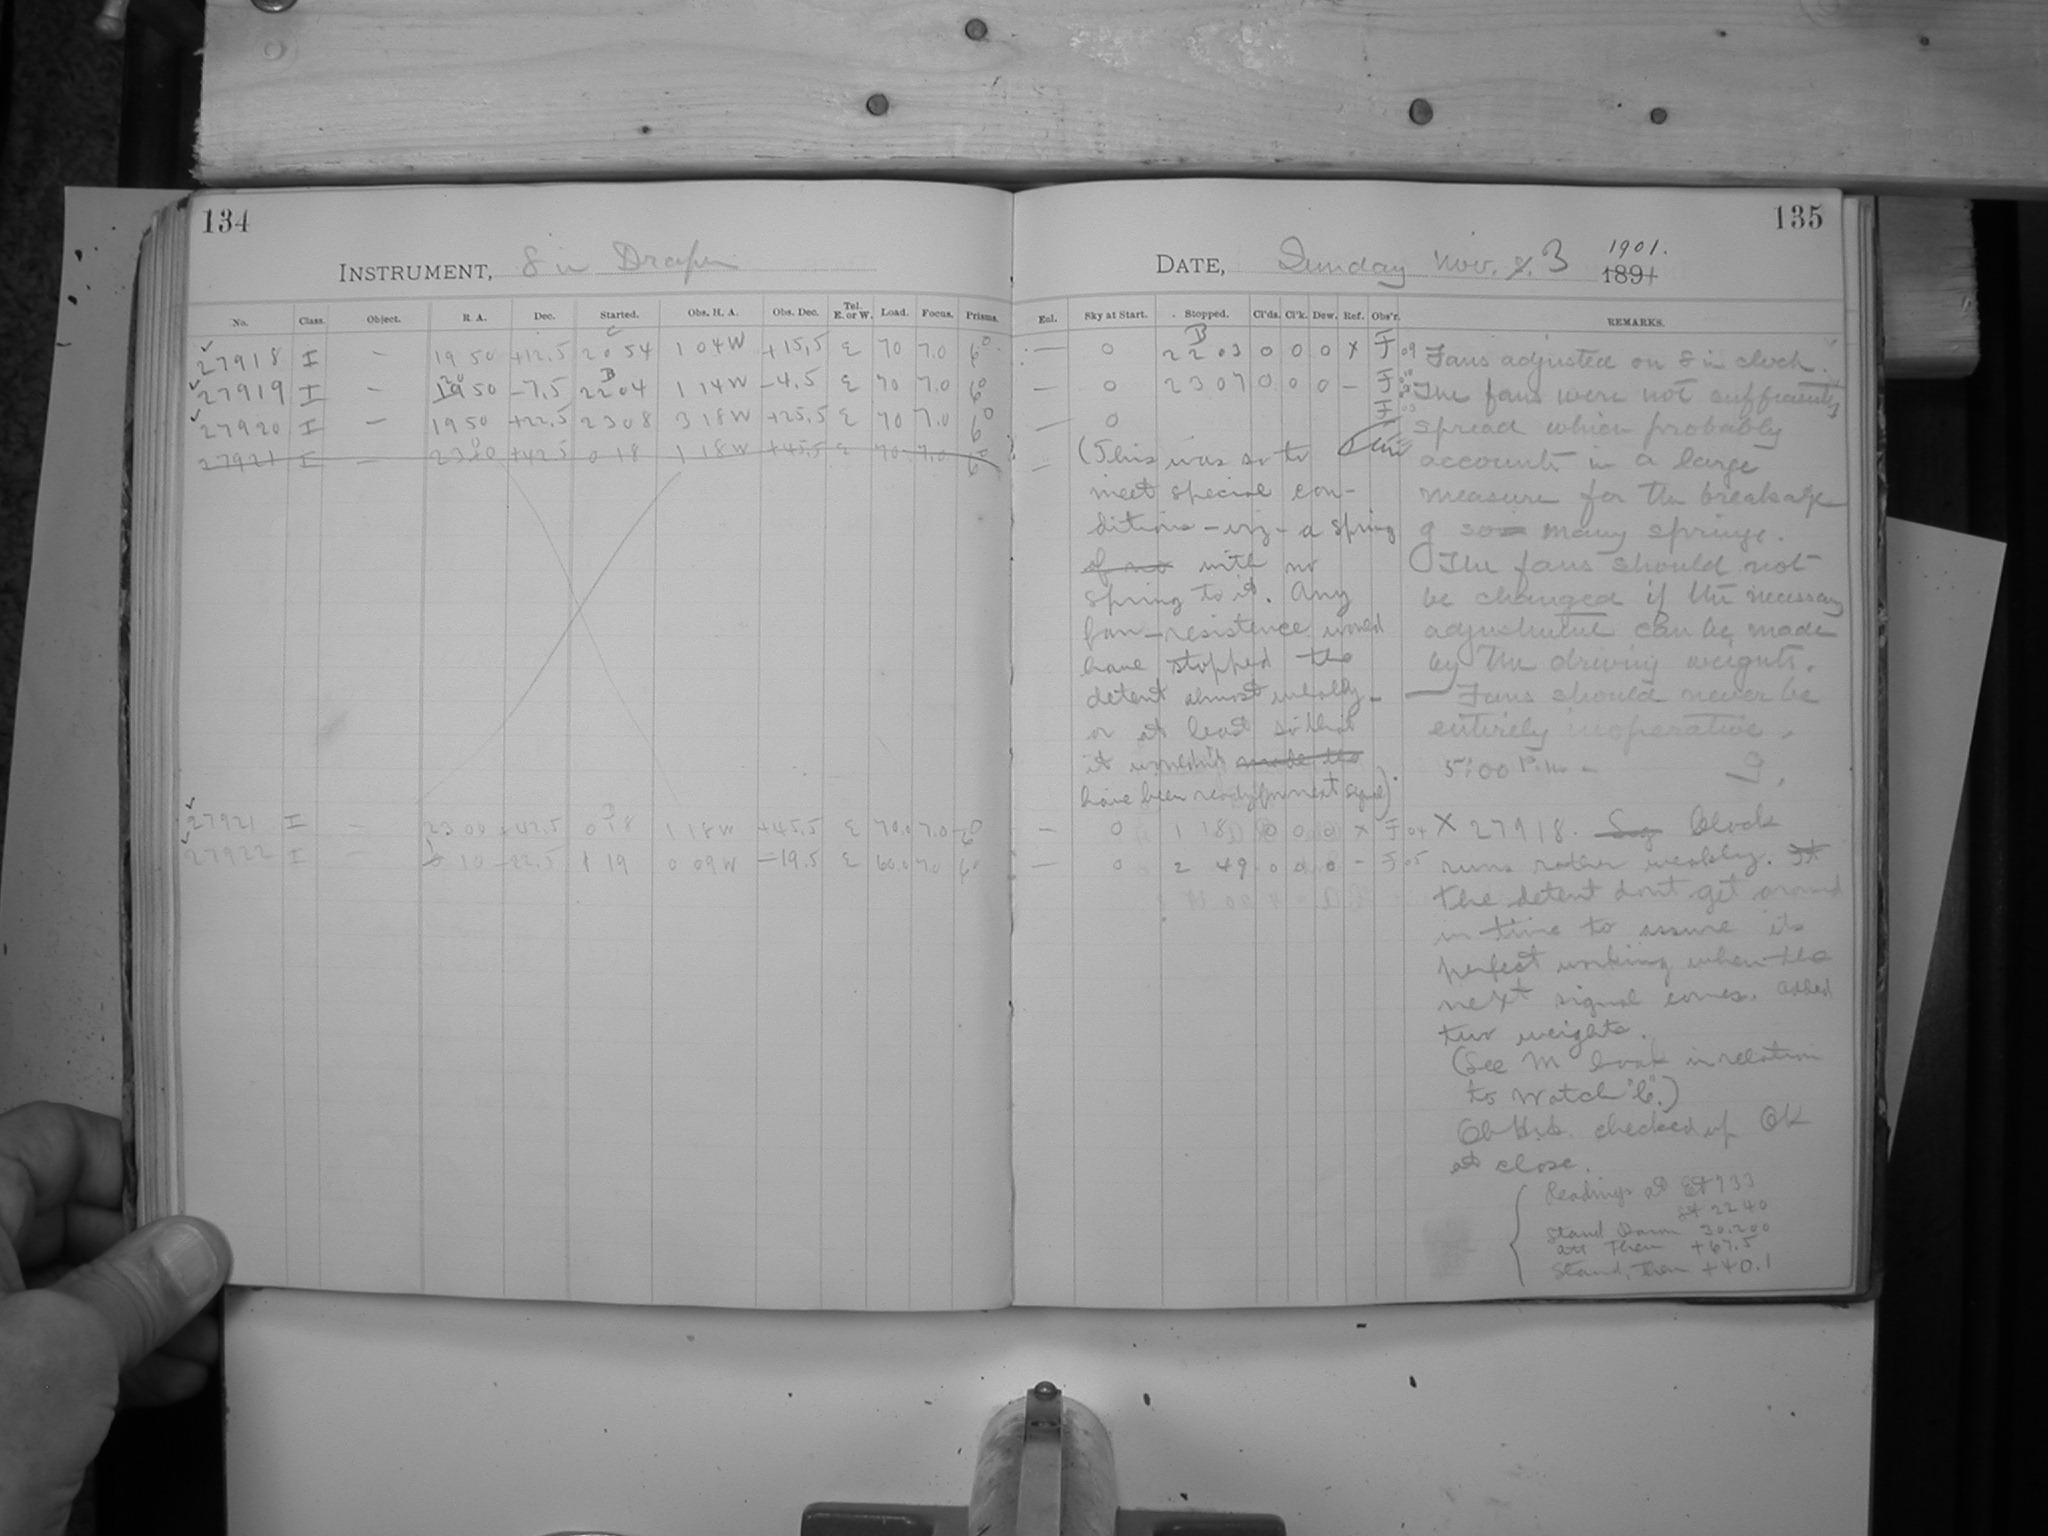 134
INSTRUMENT, 8 in Draper
No. Class. Object. R. A. Dec. Started. Obs. H. A. Obs. Dec. Tel. E. or W. Load. Focus. Prisms.
27918 I – 19 50 +12.5 20 54 1 04 W +15.5 E 70 7.0 6°
27919 I – 50 –7.5 22 04 1 14 W –4.5 E 70 7.0 6°
27920 I – 19 50 +22.5 23 08 3 18 W +25.5 E 70 7.0 6°
27921 I – +42.5 0 18 1 18 W +45.5 E 70. 7.0
27921 I – 23 00 +42.5 0 18 1 18 W +45.5 E 70.0 7.0
27922 I – 10 –22.5 1 19 0 09 W –19.5 E 60.0 7.0
135
DATE, Sunday Nov. 3 1901.
1891
Exl. Sky at Start. Stopped. Cl'ds. Cl'k. Dew. Ref. Obs'r. REMARKS.
– 0 22 03 0 0 0 x F 09
– 0 23 07 0 0 0 – F
– 0 F
(This was so to
meet special con-
ditions – viz – a spring
of no with no
spring to it. Any
fan-resistence would
have stopped the
detent almost wholly –
or at least so that
it wouldn't made the
have been ready for next signal).
– 0 1 18 0 0 0 x F 04
– 0 2 49 0 0 0 – F 05
Fans adjusted on 8 in clock.
The fans were not sufficiently
spread which probably
accounts in a large
measure for the breakage
of so many springs.
The fans should not
be changed if the necessary
adjustment can be made
by the driving weights.
– Fans should never be
entirely inoperative.
5:00 P.M. –
X 27918. Clock
runs rather weakly. It
the detent don't get around
in time to assure its
perfect working when the
next signal comes. Added
two weights.
(See M book in relation
to Watch "C".)
checked up OK
at close.
Readings at 933
at 2240
Stand Barom 30.200
att Ther +67.5
Stand. Ther +40.1